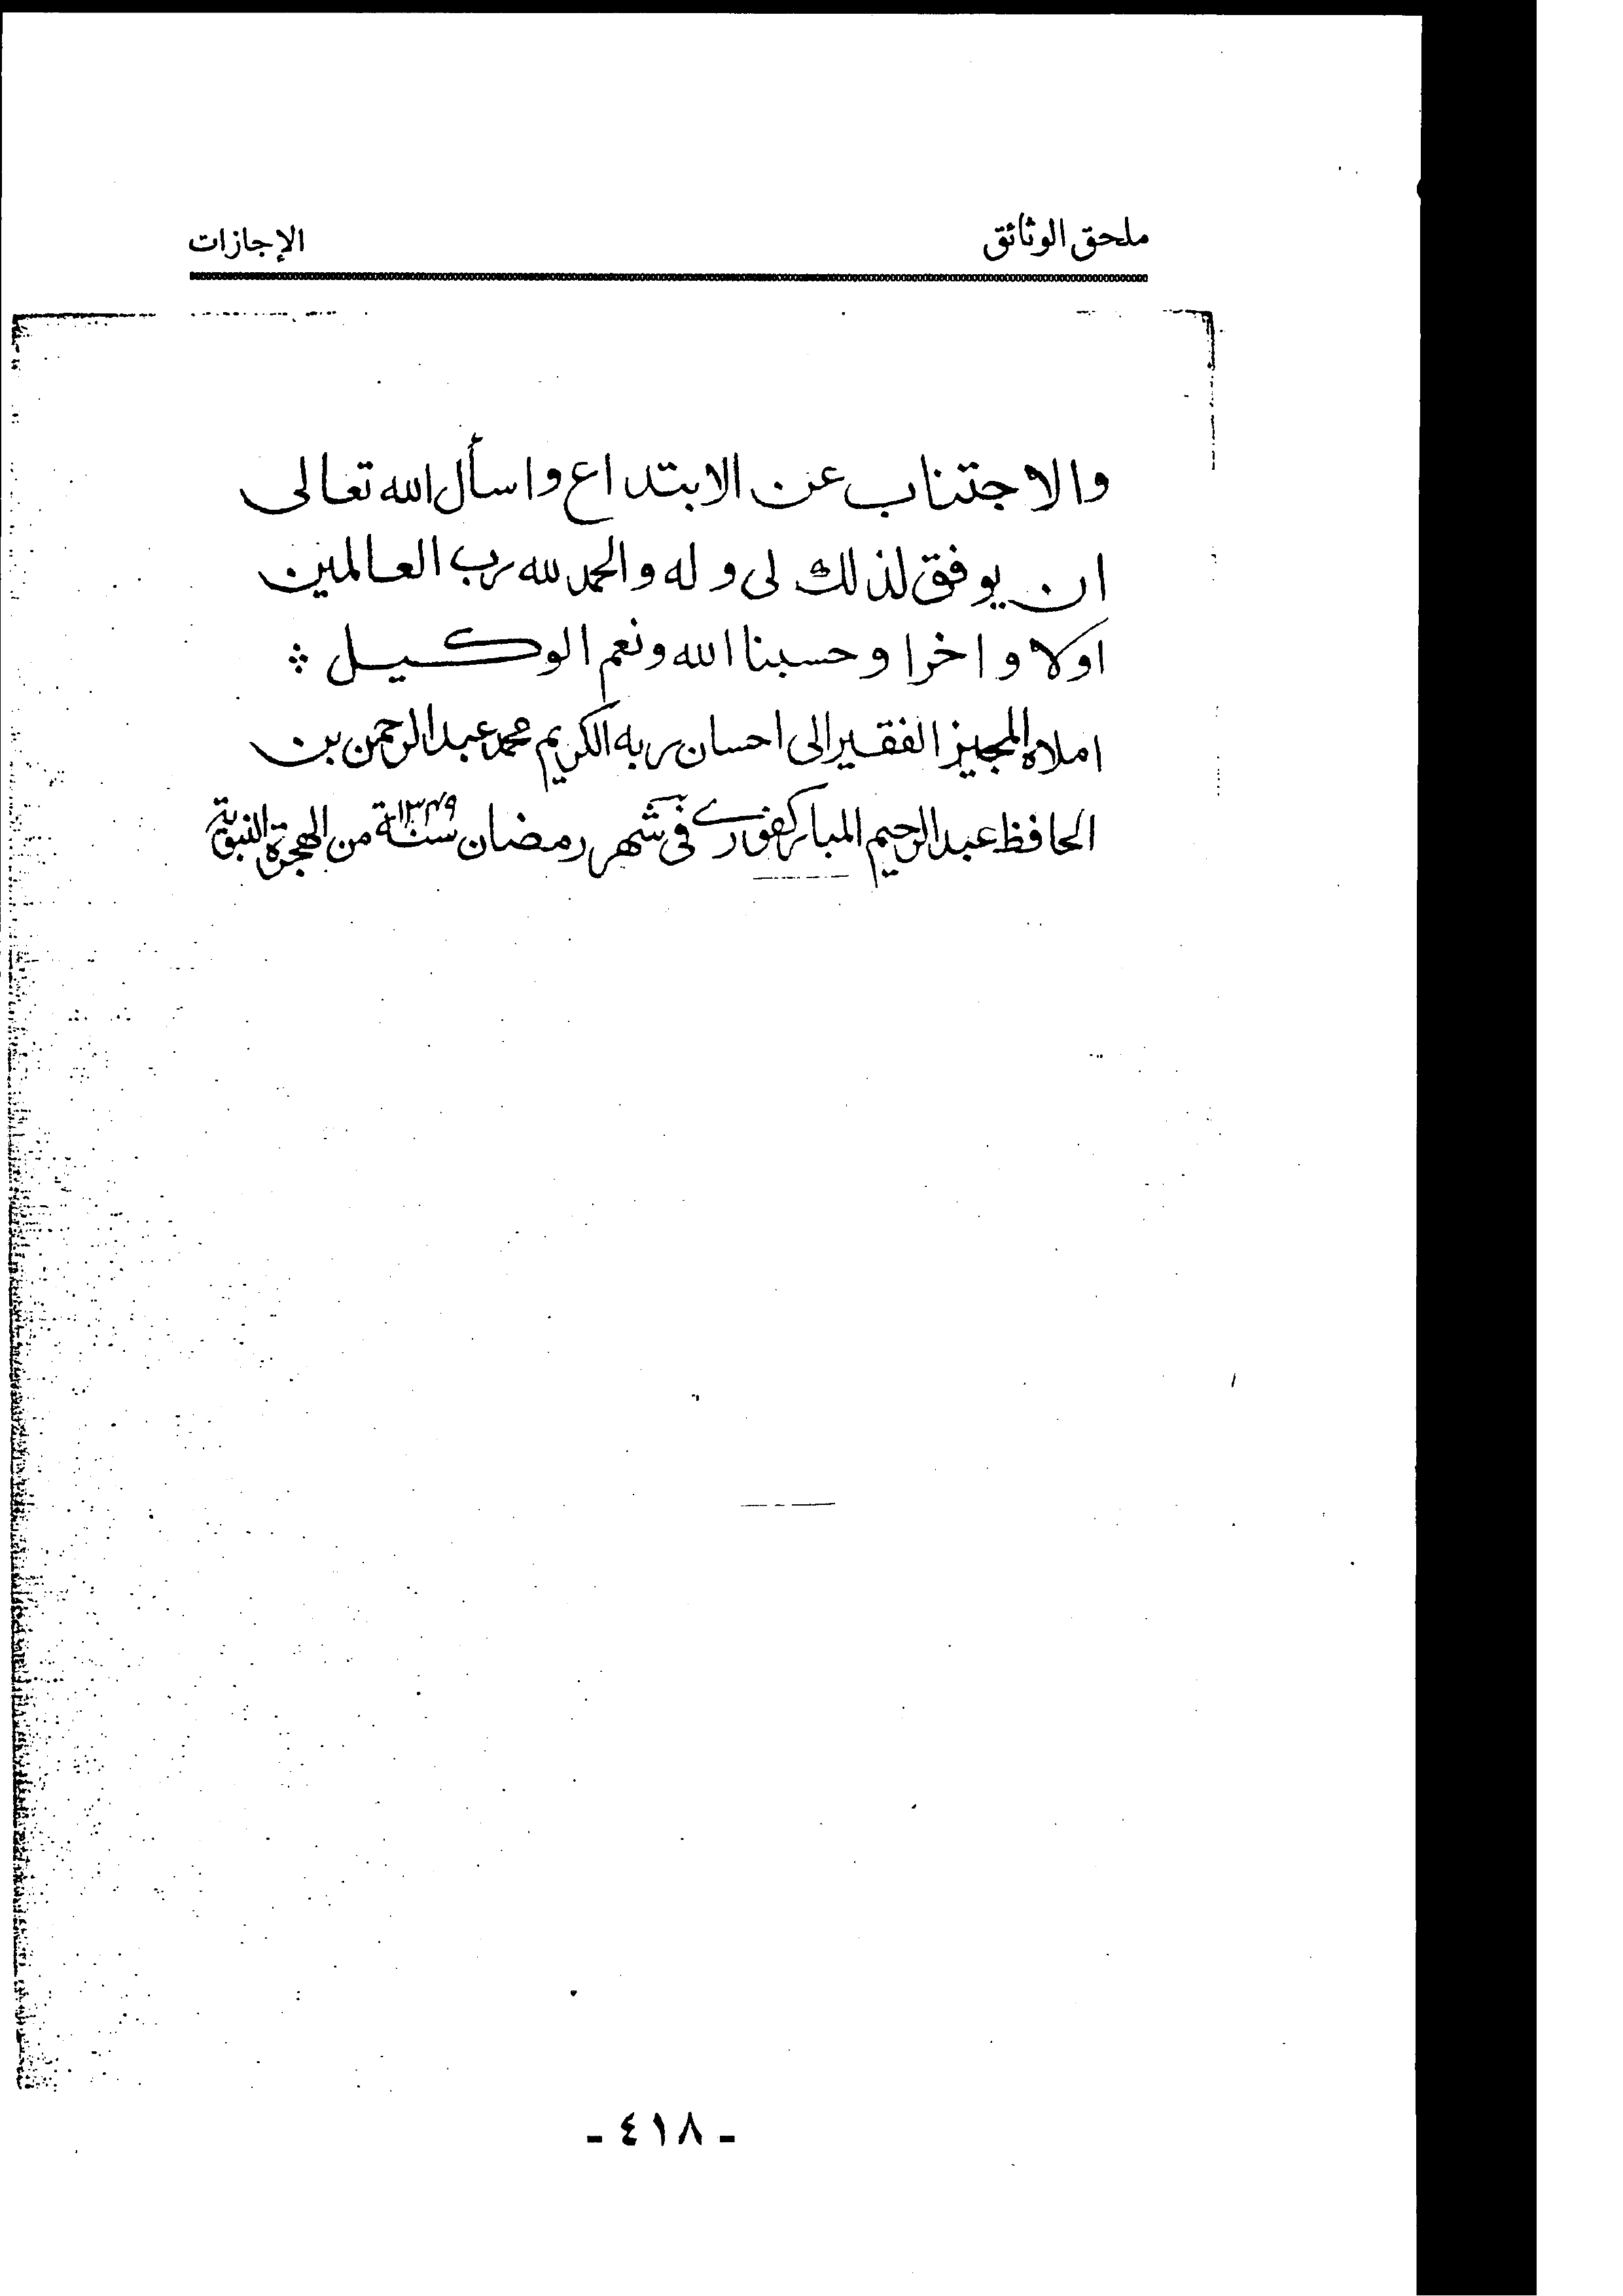 ملحق الوثائق الإجازات
والاجتناب عن الابتداع واسأل الله تعالى
ان يوفق لذلك لى وله والحمد لله رب العالمين
اولا واخرا وحسبنا الله ونعم الوكيل
املاه المجيز الفقير الى احسان ربه الكريم محمد عبد الرحمن بن
الحافظ عبد الرحيم المباركفورى فى شهر رمضان سنة ١٣٤٩ من الهجرة النبوية
- ٤١٨ -